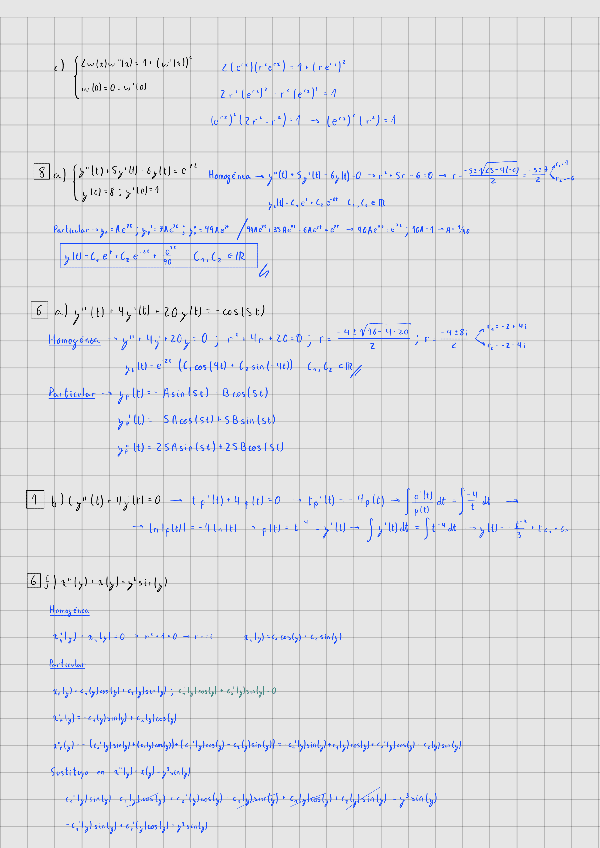 c) { 2w(x)w''(x) = 1 + (w'(x))²   2(e^{rx})(r²e^{rx}) = 1 + (re^{rx})²
w(0) = 0 = w'(0)   2r²(e^{rx})² - r²(e^{rx})² = 1
(e^{rx})²(2r² - r²) = 1 → (e^{rx})²(r²) = 1
8 a) { y''(t) + 5y'(t) - 6y(t) = e^{7t}   Homogénea → y''(t) + 5y'(t) - 6y(t) = 0 → r² + 5r - 6 = 0 → r =
y(0) = 8 ; y'(0) = 1
y_h(t) = C₁e^t + C₂e^{-6t} C₁, C₂ ∈ ℝ
Particular → y_p = Ae^{7t} ; y_p' = 7Ae^{7t} ; y_p'' = 49Ae^{7t} / 49Ae^{7t} + 35Ae^{7t} - 6Ae^{7t} = e^{7t}
y(t) = C₁e^t + C₂e^{-6t} + C₁, C₂ ∈ ℝ
6 a) y''(t) + 4y'(t) + 20y(t) = -cos(5t)
Homogénea → y'' + 4y' + 20y = 0 ; r² + 4r + 20 = 0 ; r = (-4 ± √(16 - 4·20))/2 ; r = (-4 ± 8i)/2 r₁ = -2 + 4i
r₂ = -2 - 4i
(C₁cos(4t) + C₂sin(-4t)) C₁, C₂ ∈ ℝ
Particular → y_p(t) = -Asin(5t) Bcos(5t)
y_p'(t) = 5Acos(5t) + 5Bsin(5t)
y_p''(t) = 25Asin(5t) + 25Bcos(5t)
1 b) t y''(t) + 4y'(t) = 0 → t p'(t) + 4p(t) = 0 → t p'(t) = -4p(t) → ∫ p'(t)/p(t) dt = ∫ -4/t dt →
→ ln|p(t)| = -4ln|t| → p(t) = t^{-4} = y'(t) → ∫ y'(t)dt = ∫ t^{-4}dt → y(t) =
6 x''(y) + x(y) = y³sin(y)
Homogénea
x_h''(y) + x_h(y) = 0 → r² + 1 = 0 → r = ± i   x_h(y) = c₁cos(y) + c₂sin(y)
Particular
x_p(y) = c₁(y)cos(y) + c₂(y)sin(y) ; c₁'(y)cos(y) + c₂'(y)sin(y) = 0
x_p'(y) = -c₁(y)sin(y) + c₂(y)cos(y)
x_p''(y) = -(c₁'(y)sin(y) + c₁(y)cos(y)) + (c₂'(y)cos(y) - c₂(y)sin(y))
Sustituyo en x''(y) + x(y) = y³sin(y)
-c₁'(y)sin(y) - c₁(y)cos(y) + c₂'(y)cos(y) - c₂(y)sin(y) + c₁(y)cos(y) + c₂(y)sin(y) = y³sin(y)
-c₁'(y)sin(y) + c₂'(y)cos(y) = y³sin(y)